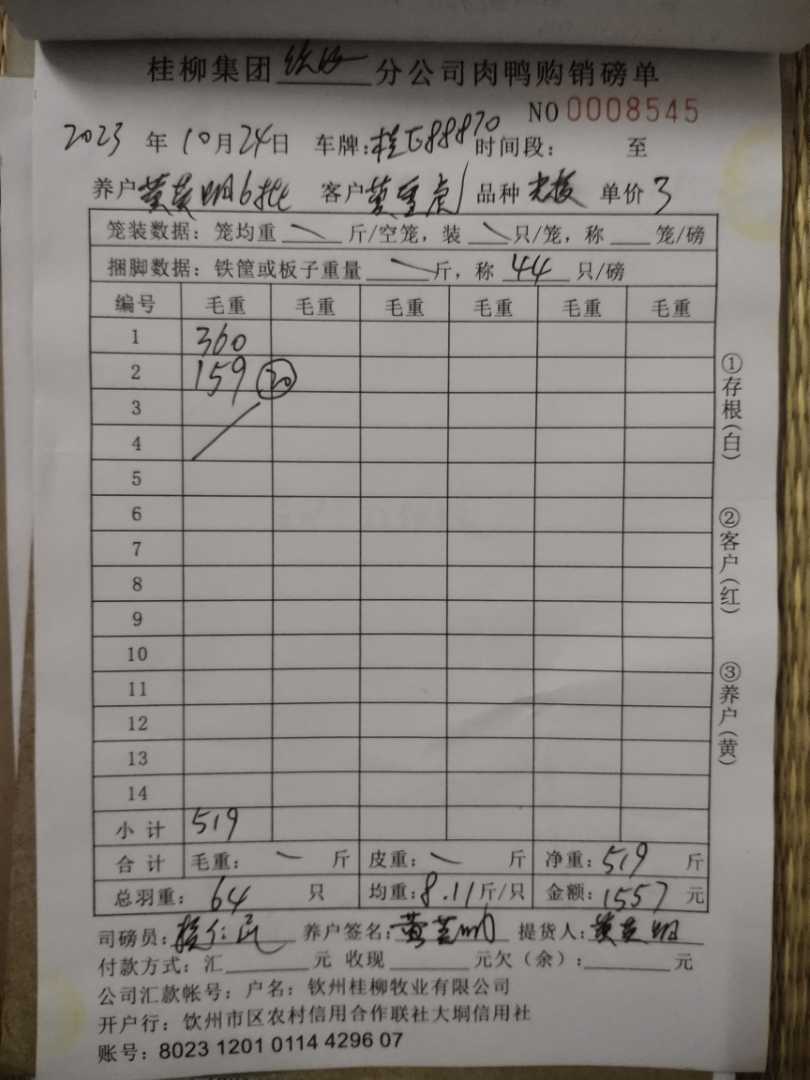 桂柳集团 钦州 分公司肉鸭购销磅单
NO 0008545
2023 年 10月24日 车牌:桂E88870 时间段: 至
养户 黄芝明6批 客户 黄重虎 品种 单价 3
笼装数据: 笼均重 \ 斤/空笼, 装 \ 只/笼, 称 笼/磅
捆脚数据: 铁筐或板子重量 \ 斤, 称 44 只/磅
编号 毛重 毛重 毛重 毛重 毛重 毛重
1 360
2 159 20
3
4
5
6
7
8
9
10
11
12
13
14
小 计 519
合 计 毛重: \ 斤 皮重: \ 斤 净重: 519 斤
总羽重: 64 只 均重: 8.11 斤/只 金额: 1557 元
司磅员: 养户签名: 黄芝明 提货人: 黄芝明
付款方式: 汇 元 收现 元欠 (余): 元
公司汇款帐号: 户名: 钦州桂柳牧业有限公司
开户行: 钦州市区农村信用合作联社大垌信用社
账号: 8023 1201 0114 4296 07
①存根(白)
②客户(红)
③养户(黄)